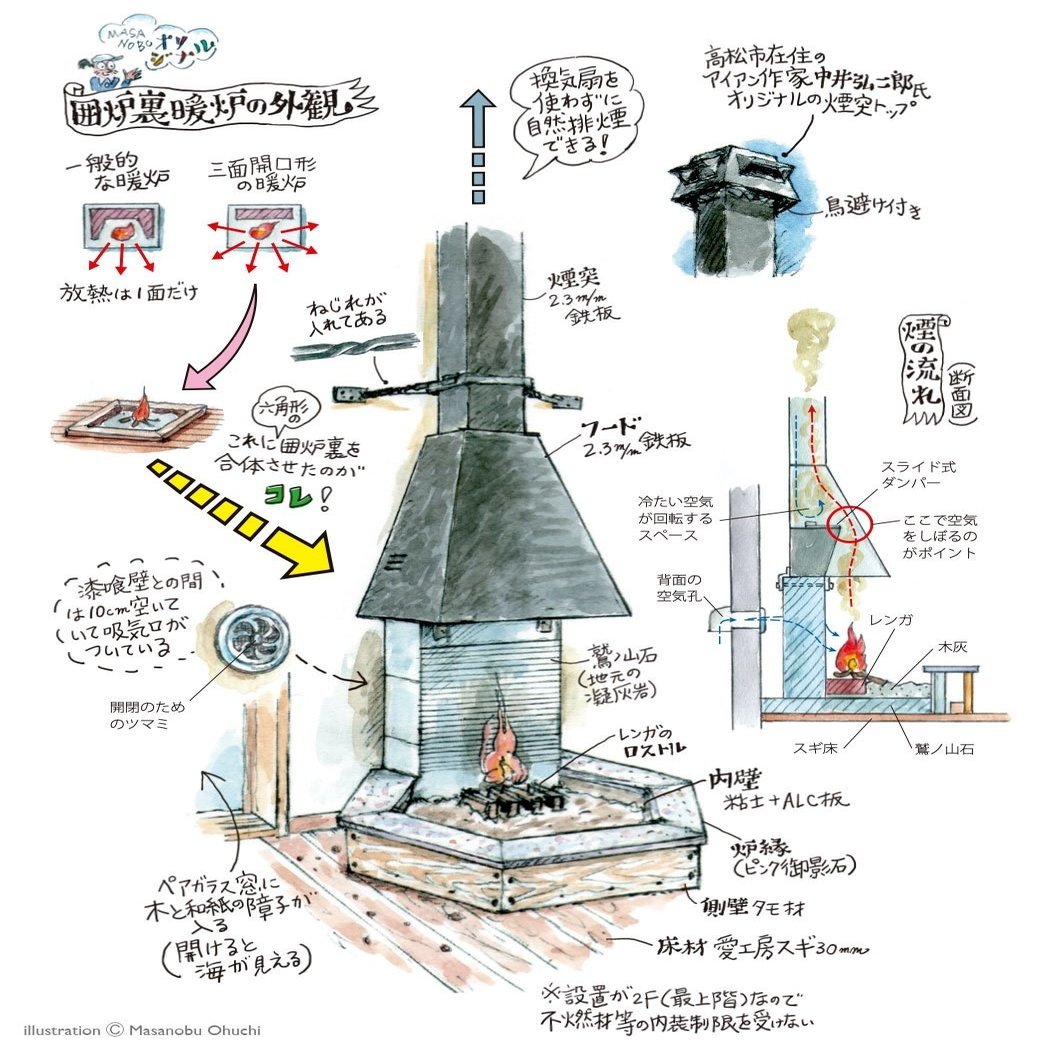 MASA
NOBU
オリ
ジナル
囲炉裏暖炉の外観
一般的
な暖炉
三面開口形
の暖炉
放熱は1面だけ
換気扇を
使わずに
自然排煙
できる!
高松市在住の
アイアン作家中井弘二郎氏
オリジナルの煙突トップ
鳥避け付き
煙突
2.3m/m
鉄板
ねじれが
入れてある
六角形
の
これに囲炉裏を
合体させたのが
コレ!
フード
2.3m/m鉄板
煙の流れ
(断面図)
スライド式
ダンパー
冷たい空気
が回転する
スペース
ここで空気
をしぼるの
がポイント
背面の
空気孔
レンガ
木灰
スギ床
鷲ノ山石
漆喰壁との間
は10cm空いて
いて吸気口が
ついている
開閉のため
のツマミ
鷲ノ山石
(地元の
凝灰岩)
レンガの
ロストル
内壁
粘土+ALC板
炉縁
(ピンク御影石)
側壁 タモ材
床材 愛工房スギ30mm
ペアガラス窓に
木と和紙の障子が
入る
(開けると
海が見える)
※設置が2F(最上階)なので
不燃材等の内装制限を受けない
illustration © Masanobu Ohuchi